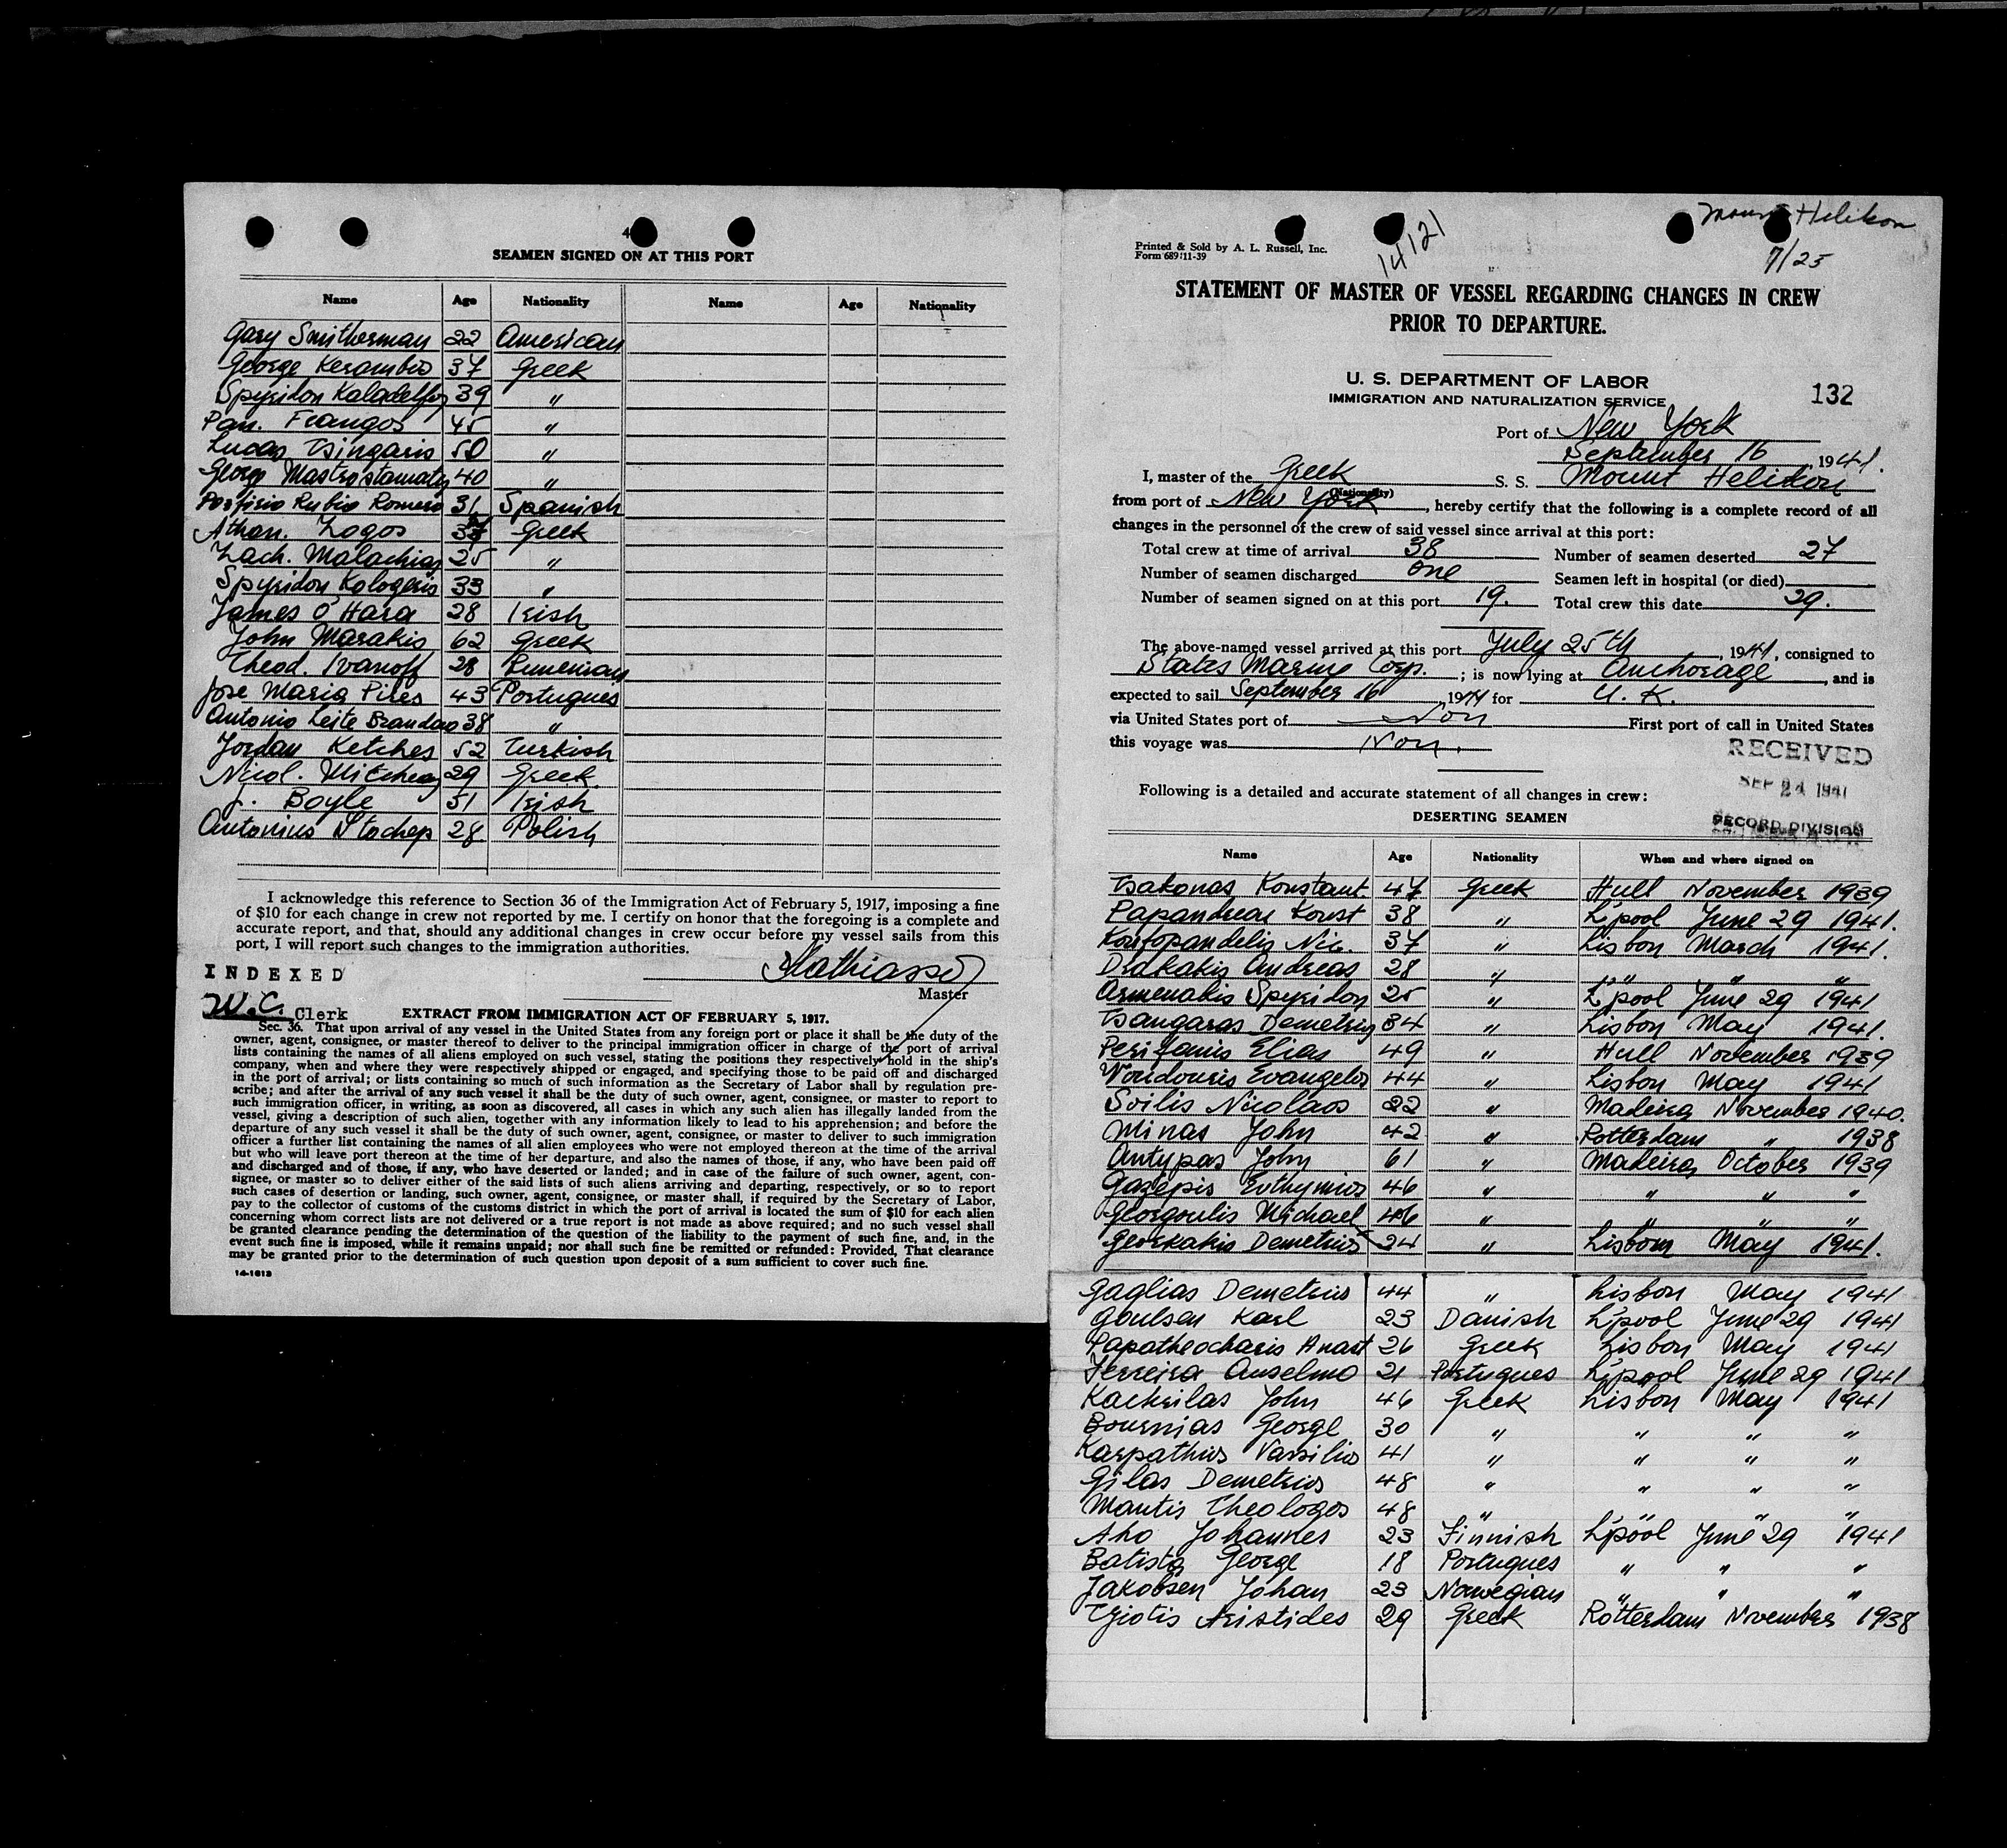 4
SEAMEN SIGNED ON AT THIS PORT
Name Age Nationality Name Age Nationality
Gary Smitherman 22 American
George Kerambio 37 Greek
Spyridon Kaladelfos 39 "
Pan. Frangos 45 "
Lucas Tsingaris 50 "
George Mastrostamatis 40 "
Porfirio Rubio Romero 31 Spanish
Athan. Zogos Greek
Zach. Malachias 25 "
Spyridon Kalogeris 33 "
James O'Hara 28 Irish
John Marakis 62 Greek
Theod. Ivanoff 28 Rumenian
Jose Maria Pires 43 Portugues
Antonio Leite Brandao 38 "
Jordan Ketches 52 Turkish
Nicol. Mitcheas 29 Greek
J. Boyle 51 Irish
Antonius Stachep 28 Polish
I acknowledge this reference to Section 36 of the Immigration Act of February 5, 1917, imposing a fine
of $10 for each change in crew not reported by me. I certify on honor that the foregoing is a complete and
accurate report, and that, should any additional changes in crew occur before my vessel sails from this
port, I will report such changes to the immigration authorities.
INDEXED
Master
W.C. Clerk
EXTRACT FROM IMMIGRATION ACT OF FEBRUARY 5, 1917.
Sec. 36. That upon arrival of any vessel in the United States from any foreign port or place it shall be the duty of the
owner, agent, consignee, or master thereof to deliver to the principal immigration officer in charge of the port of arrival
lists containing the names of all aliens employed on such vessel, stating the positions they respectively hold in the ship's
company, when and where they were respectively shipped or engaged, and specifying those to be paid off and discharged
in the port of arrival; or lists containing so much of such information as the Secretary of Labor shall by regulation pre-
scribe; and after the arrival of any such vessel it shall be the duty of such owner, agent, consignee, or master to report to
such immigration officer, in writing, as soon as discovered, all cases in which any such alien has illegally landed from the
vessel, giving a description of such alien, together with any information likely to lead to his apprehension; and before the
departure of any such vessel it shall be the duty of such owner, agent, consignee, or master to deliver to such immigration
officer a further list containing the names of all alien employees who were not employed thereon at the time of the arrival
but who will leave port thereon at the time of her departure, and also the names of those, if any, who have been paid off
and discharged and of those, if any, who have deserted or landed; and in case of the failure of such owner, agent, con-
signee, or master so to deliver either of the said lists of such aliens arriving and departing, respectively, or so to report
such cases of desertion or landing, such owner, agent, consignee, or master shall, if required by the Secretary of Labor,
pay to the collector of customs of the customs district in which the port of arrival is located the sum of $10 for each alien
concerning whom correct lists are not delivered or a true report is not made as above required; and no such vessel shall
be granted clearance pending the determination of the question of the liability to the payment of such fine, and, in the
event such fine is imposed, while it remains unpaid; nor shall such fine be remitted or refunded: Provided, That clearance
may be granted prior to the determination of such question upon deposit of a sum sufficient to cover such fine.
14-1613
Mount Helikon
7/25
14121
Printed & Sold by A. L. Russell, Inc.
Form 689:11-39
STATEMENT OF MASTER OF VESSEL REGARDING CHANGES IN CREW
PRIOR TO DEPARTURE.
U. S. DEPARTMENT OF LABOR
IMMIGRATION AND NATURALIZATION SERVICE
132
Port of New York
September 16, 1941.
I, master of the Greek S. S. Mount Helikon
(Nationality)
from port of New York, hereby certify that the following is a complete record of all
changes in the personnel of the crew of said vessel since arrival at this port:
Total crew at time of arrival 38 Number of seamen deserted 27
Number of seamen discharged one Seamen left in hospital (or died)
Number of seamen signed on at this port 19. Total crew this date 29.
The above-named vessel arrived at this port July 25th, 1941, consigned to
States Marine Corp.; is now lying at Anchorage, and is
expected to sail September 16, 1941 for U. K.
via United States port of Non First port of call in United States
this voyage was Non.
RECEIVED
SEP 24 1941
RECORD DIVISION
Following is a detailed and accurate statement of all changes in crew:
DESERTING SEAMEN
Name Age Nationality When and where signed on
Tsakonas Konstant. 47 Greek Hull November 1939
Papandreau Konst 38 " L'pool June 29 1941.
Konfopandelis Nic. 37 " Lisbon March 1941.
Drakakis Andreas 28 " " " "
Armenakis Spyridon 25 " L'pool June 29 1941
Tsangaras Demetrius 34 " Lisbon May 1941.
Perifanis Elias 49 " Hull November 1939
Voudouris Evangelos 44 " Lisbon May 1941
Soilis Nicolaos 22 " Madeira November 1940.
Minas John 42 " Rotterdam " 1938
Antypas John 61 " Madeira October 1939
Gazepis Evthymios 46 " " " "
Georgoulis Michael 46 " " " "
Georkakis Demetrius 24 " Lisbom May 1941.
Gaglias Demetrius 44 " Lisbon May 1941
Goulsen Karl 23 Danish L'pool June 29 1941
Papatheocharis Anast 26 Greek Lisbon May 1941
Ferreira Anselmo 21 Portugues L'pool June 29 1941
Kachrilas John 46 Greek Lisbon May 1941
Bournias George 30 " " " "
Karpathios Vassilios 41 " " " "
Gilas Demetrios 48 " " " "
Mantis Theologos 48 " " " "
Aho Johannes 23 Finnish L'pool June 29 1941
Batista George 18 Portugues " " "
Jakobsen Johan 23 Norwegian " " "
Tziotis Aristides 29 Greek Rotterdam November 1938